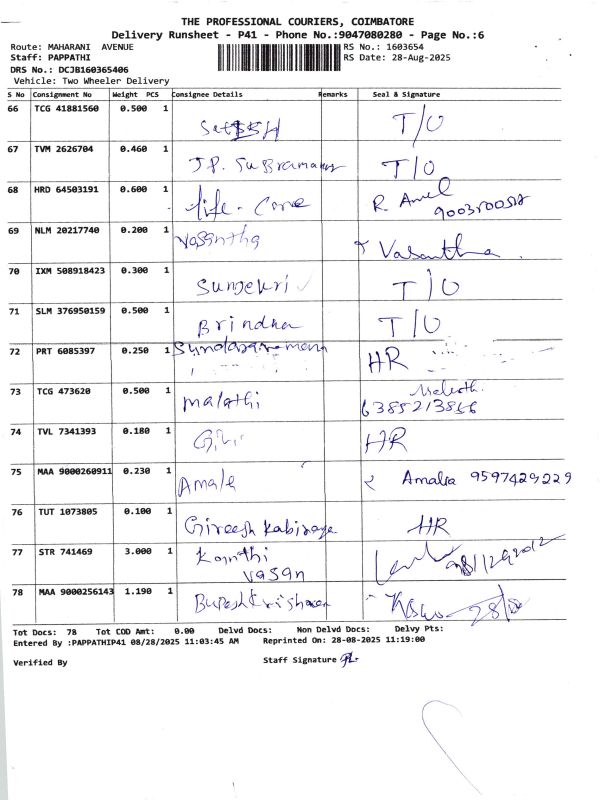 THE PROFESSIONAL COURIERS, COIMBATORE
Delivery Runsheet - P41 - Phone No.:9047080280 - Page No.:6
Route: MAHARANI AVENUE RS No.: 1603654
Staff: PAPPATHI RS Date: 28-Aug-2025
DRS No.: DCJB160365406
Vehicle: Two Wheeler Delivery
S No Consignment No Weight PCS Consignee Details Remarks Seal & Signature
66 TCG 41881560 0.500 1
T/O
67 TVM 2626704 0.460 1
JP. Subramany T/O
68 HRD 64503191 0.600 1
life. Care R
69 NLM 20217740 0.200 1
Vasantha Vasantha
70 IXM 508918423 0.300 1
T/O
71 SLM 376950159 0.500 1
Brindha T/O
72 PRT 6085397 0.250 1
HR
73 TCG 473620 0.500 1
malathi 6385213866
74 TVL 7341393 0.180 1
HR
75 MAA 9000260911 0.230 1
Amala 9597429229
76 TUT 1073805 0.100 1
Gireesh HR
77 STR 741469 3.000 1
vasan
78 MAA 9000256143 1.190 1
Tot Docs: 78 Tot COD Amt: 0.00 Delvd Docs: Non Delvd Docs: Delvy Pts:
Entered By :PAPPATHIP41 08/28/2025 11:03:45 AM Reprinted On: 28-08-2025 11:19:00
Verified By Staff Signature